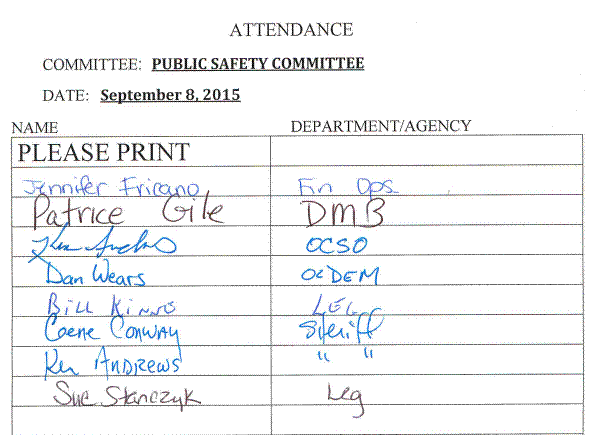 ATTENDANCE
COMMITTEE: PUBLIC SAFETY COMMITTEE
DATE: September 8, 2015
NAME DEPARTMENT/AGENCY
PLEASE PRINT
Jennifer Frirano Fin Ops
Patrice Gile DMB
OCSO
Dan Wears OCDEM
Bill Kinne LEG
Gene Conway Sheriff
Ken Andrews " "
Sue Stanczyk Leg